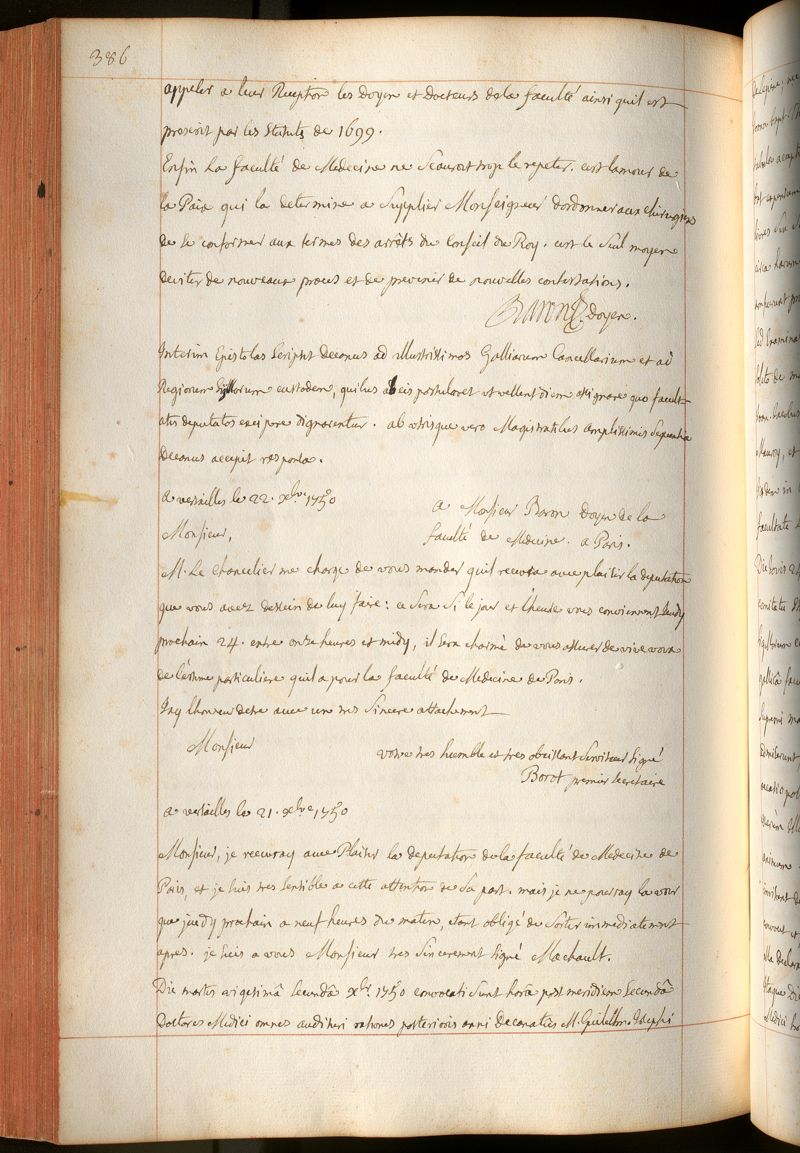 386
appeler a leur Reception les Doyen et Docteurs de la faculté ainsi quil est
prescrit par les Statuts de 1699.
Enfin La faculté de Medecine ne Scauroit trop le repeter. cest lamour de
la Paix qui la determine a Supplier Monseigneur dordonner aux chirurgiens
de se conformer aux termes des arrêts du Conseil du Roy. cest le Seul moyen
deviter de nouveaux procés et de prevenir de nouvelles contestations.
Baron Doyen.
Interim Epistolas Scripsit Decanus ad illustrissimos Galliarum Cancellarium et ad
Regiorum Sigillorum custodem, quibus ab eis postularet ut vellent diem assignare quo facult-
atis deputatos excipere dignarentur. ab utrisque vero Magistratibus amplissimis Sequentia
Decanus accepit responsa.
a versailles le 22. xbre 1750
a Monsieur Baron Doyen de la
faculté de Medecine. a Paris.
Monsieur,
M. Le Chancelier me charge de vous mander quil recevra avec plaisir la deputation
que vous avez dessein de luy faire: ce Sera Si le jour et l'heure vous conviennent Jeudy
prochain 24. entre onze heures et midy, il Sera charmé de vous assurer de vive voix
de l'estime particuliere quil a pour la faculté de Medecine de Paris.
Jay lhonneur detre avec un tres Sincere attachement
Monsieur
votre tres humble et tres obeissant Serviteur Signé
Borot premier Secretaire
a versailles le 21. xbre 1750
Monsieur, je recevray avec Plaisir la deputation de la faculté de Medecine de
Paris, et je suis tres Sensible a cette attention de Sa part. mais je ne pourray la voir
que jeudy prochain a neuf heures du matin, etant obligé de Sortir immediatement
apres. je suis a vous Monsieur tres Sincerement Signé Machault.
Die martis vigesimâ Secundâ xbr. 1750 convocati Sunt horâ post meridiem Secundâ
Doctores Medici omnes audituri rationes posterioris anni Decanatûs M. Guillelm. Josephi